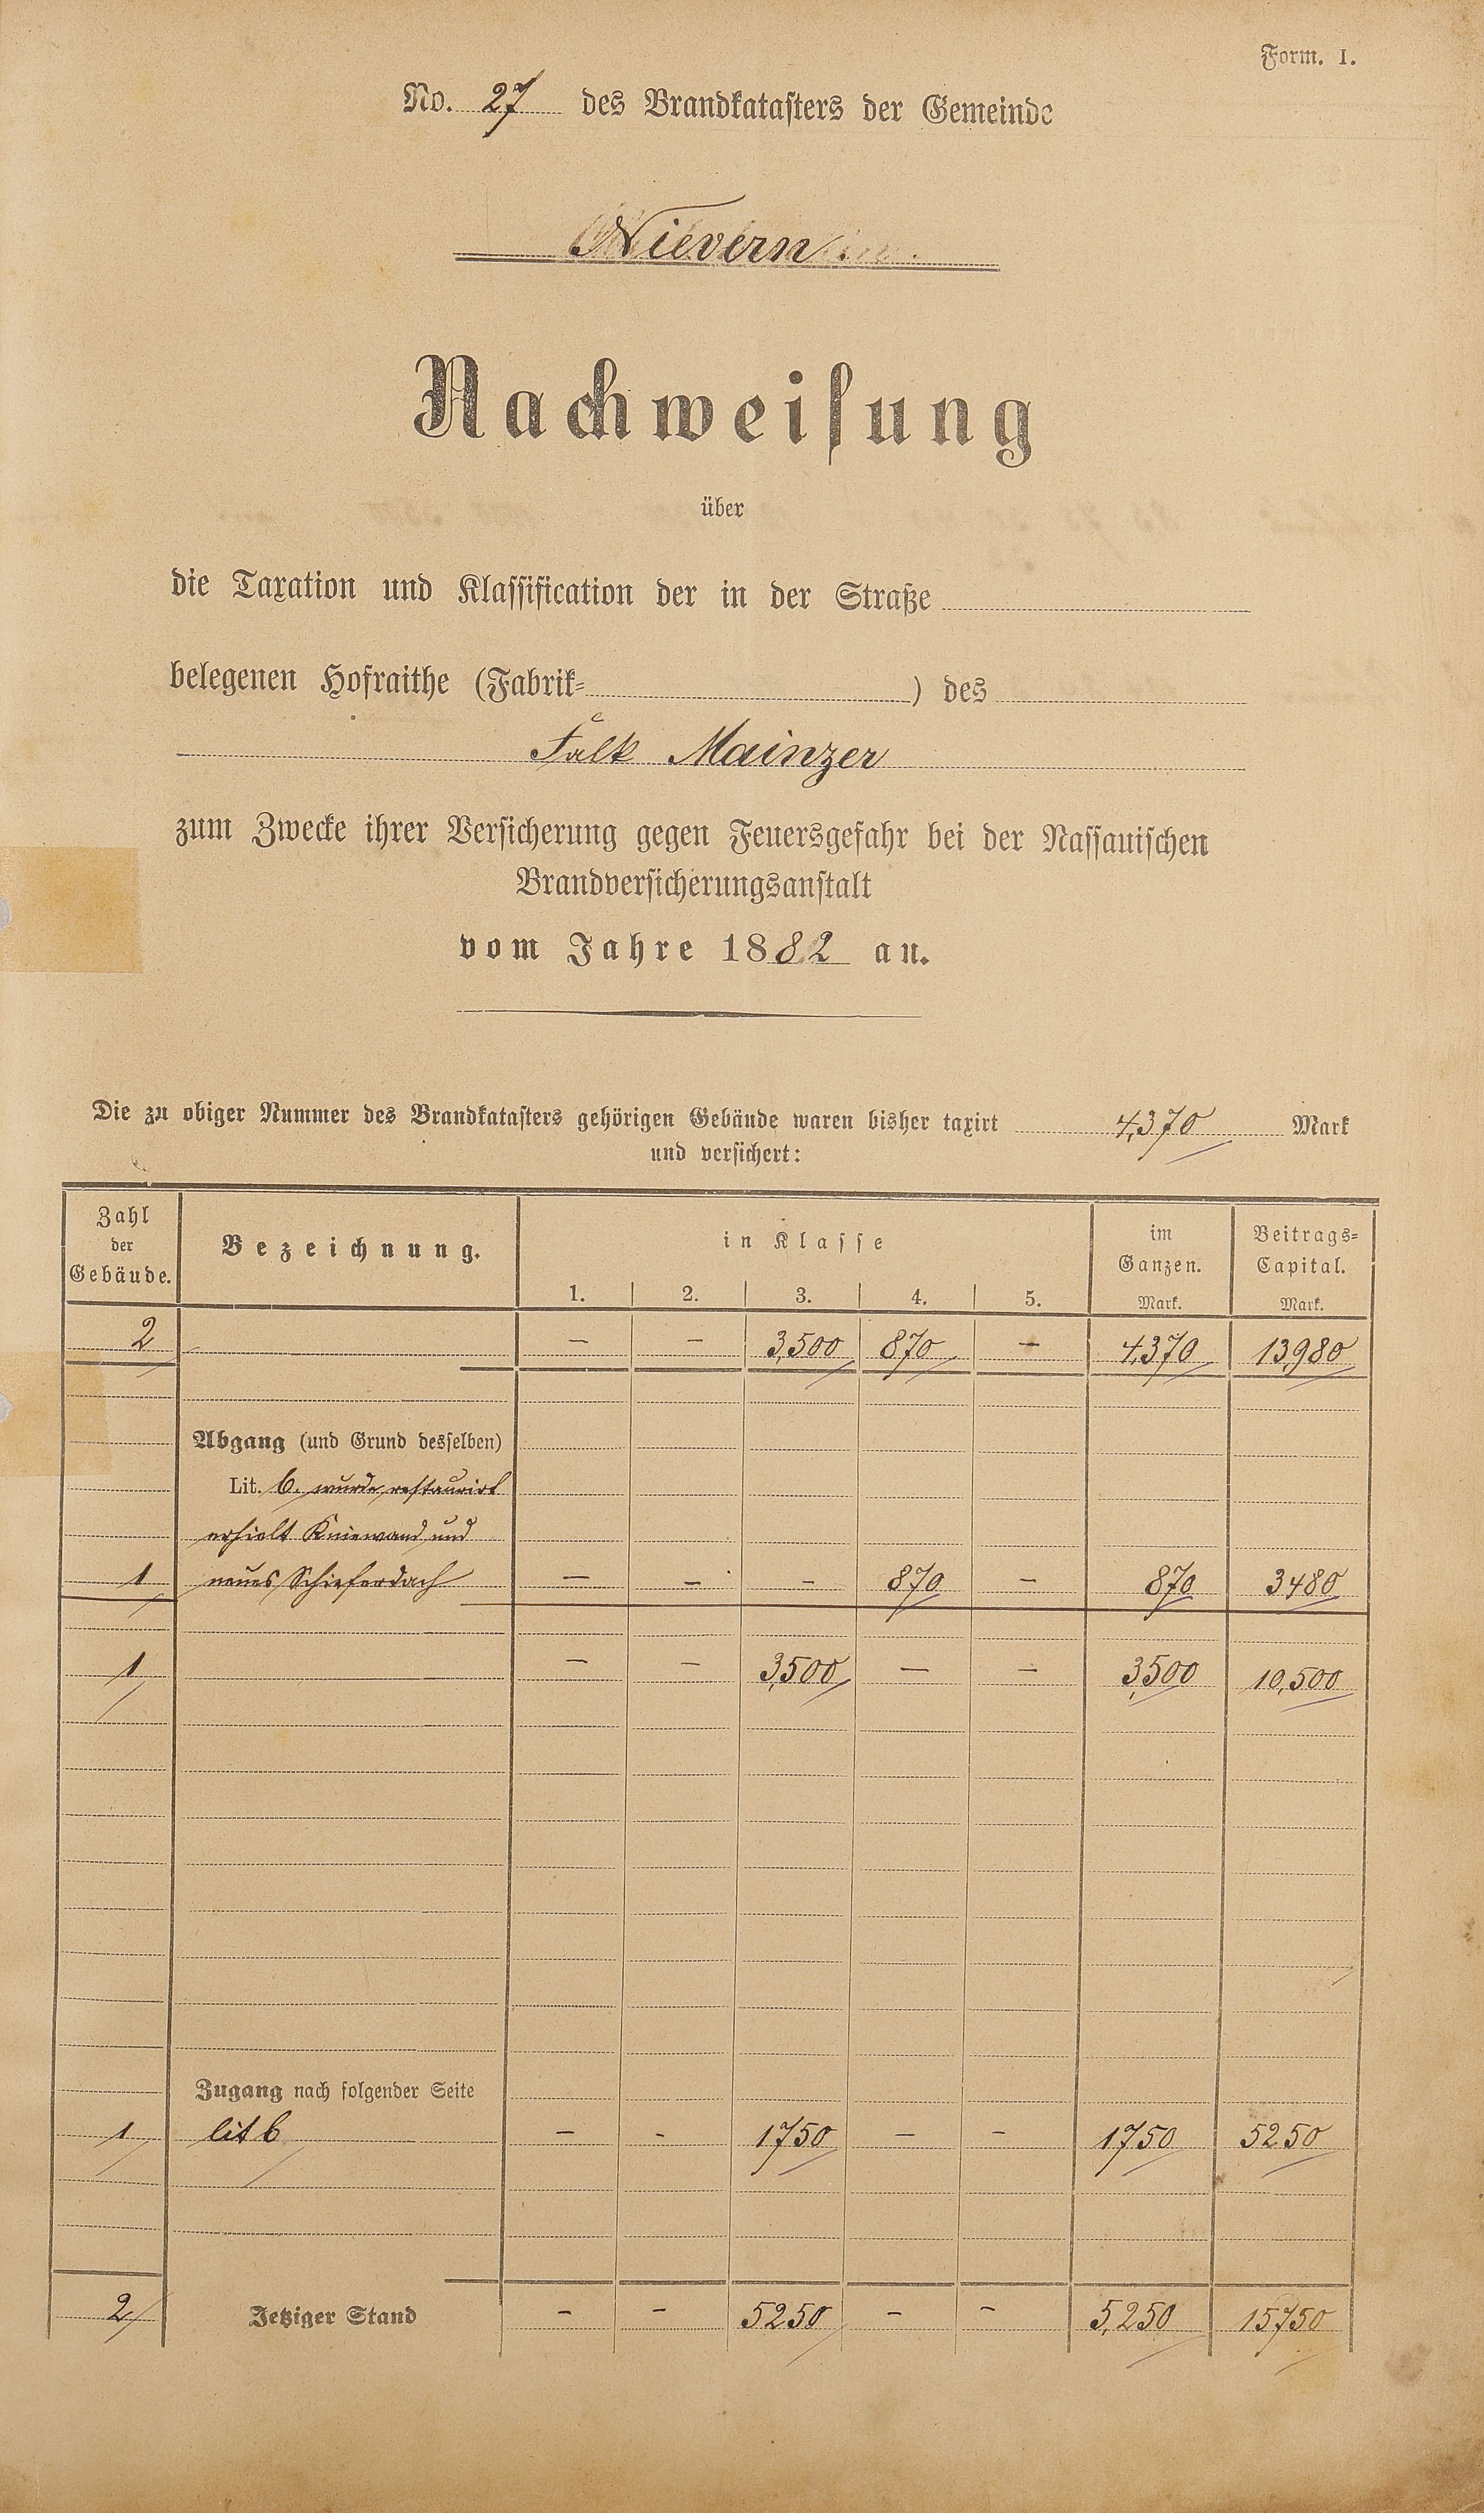 Form. I.
No. 27 des Brandkatasters der Gemeinde
Nievern
Nachweisung
über
die Taxation und Klassification der in der Straße
belegenen Hofraithe (Fabrik- ) des
Falk Mainzer
zum Zwecke ihrer Versicherung gegen Feuersgefahr bei der Nassauischen
Brandversicherungsanstalt
vom Jahre 1882 an.
Die zu obiger Nummer des Brandkatasters gehörigen Gebäude waren bisher taxirt 4,370 Mark
und versichert:
Zahl der Gebäude. Bezeichnung. in Klasse im Ganzen. Beitrags-Capital.
1. 2. 3. 4. 5. Mark. Mark.
2 — — 3,500 870 — 4,370 13,980
Abgang (und Grund desselben)
Lit. b. wurde restaurirt
erhielt Kniewand und
1 neues Schieferdach — — — 870 — 870 3480
1 — — 3,500 — — 3,500 10,500
Zugang nach folgender Seite
1 lit b — - 1750 — — 1750 5250
2 Jetziger Stand — — 5250 — — 5,250 15750